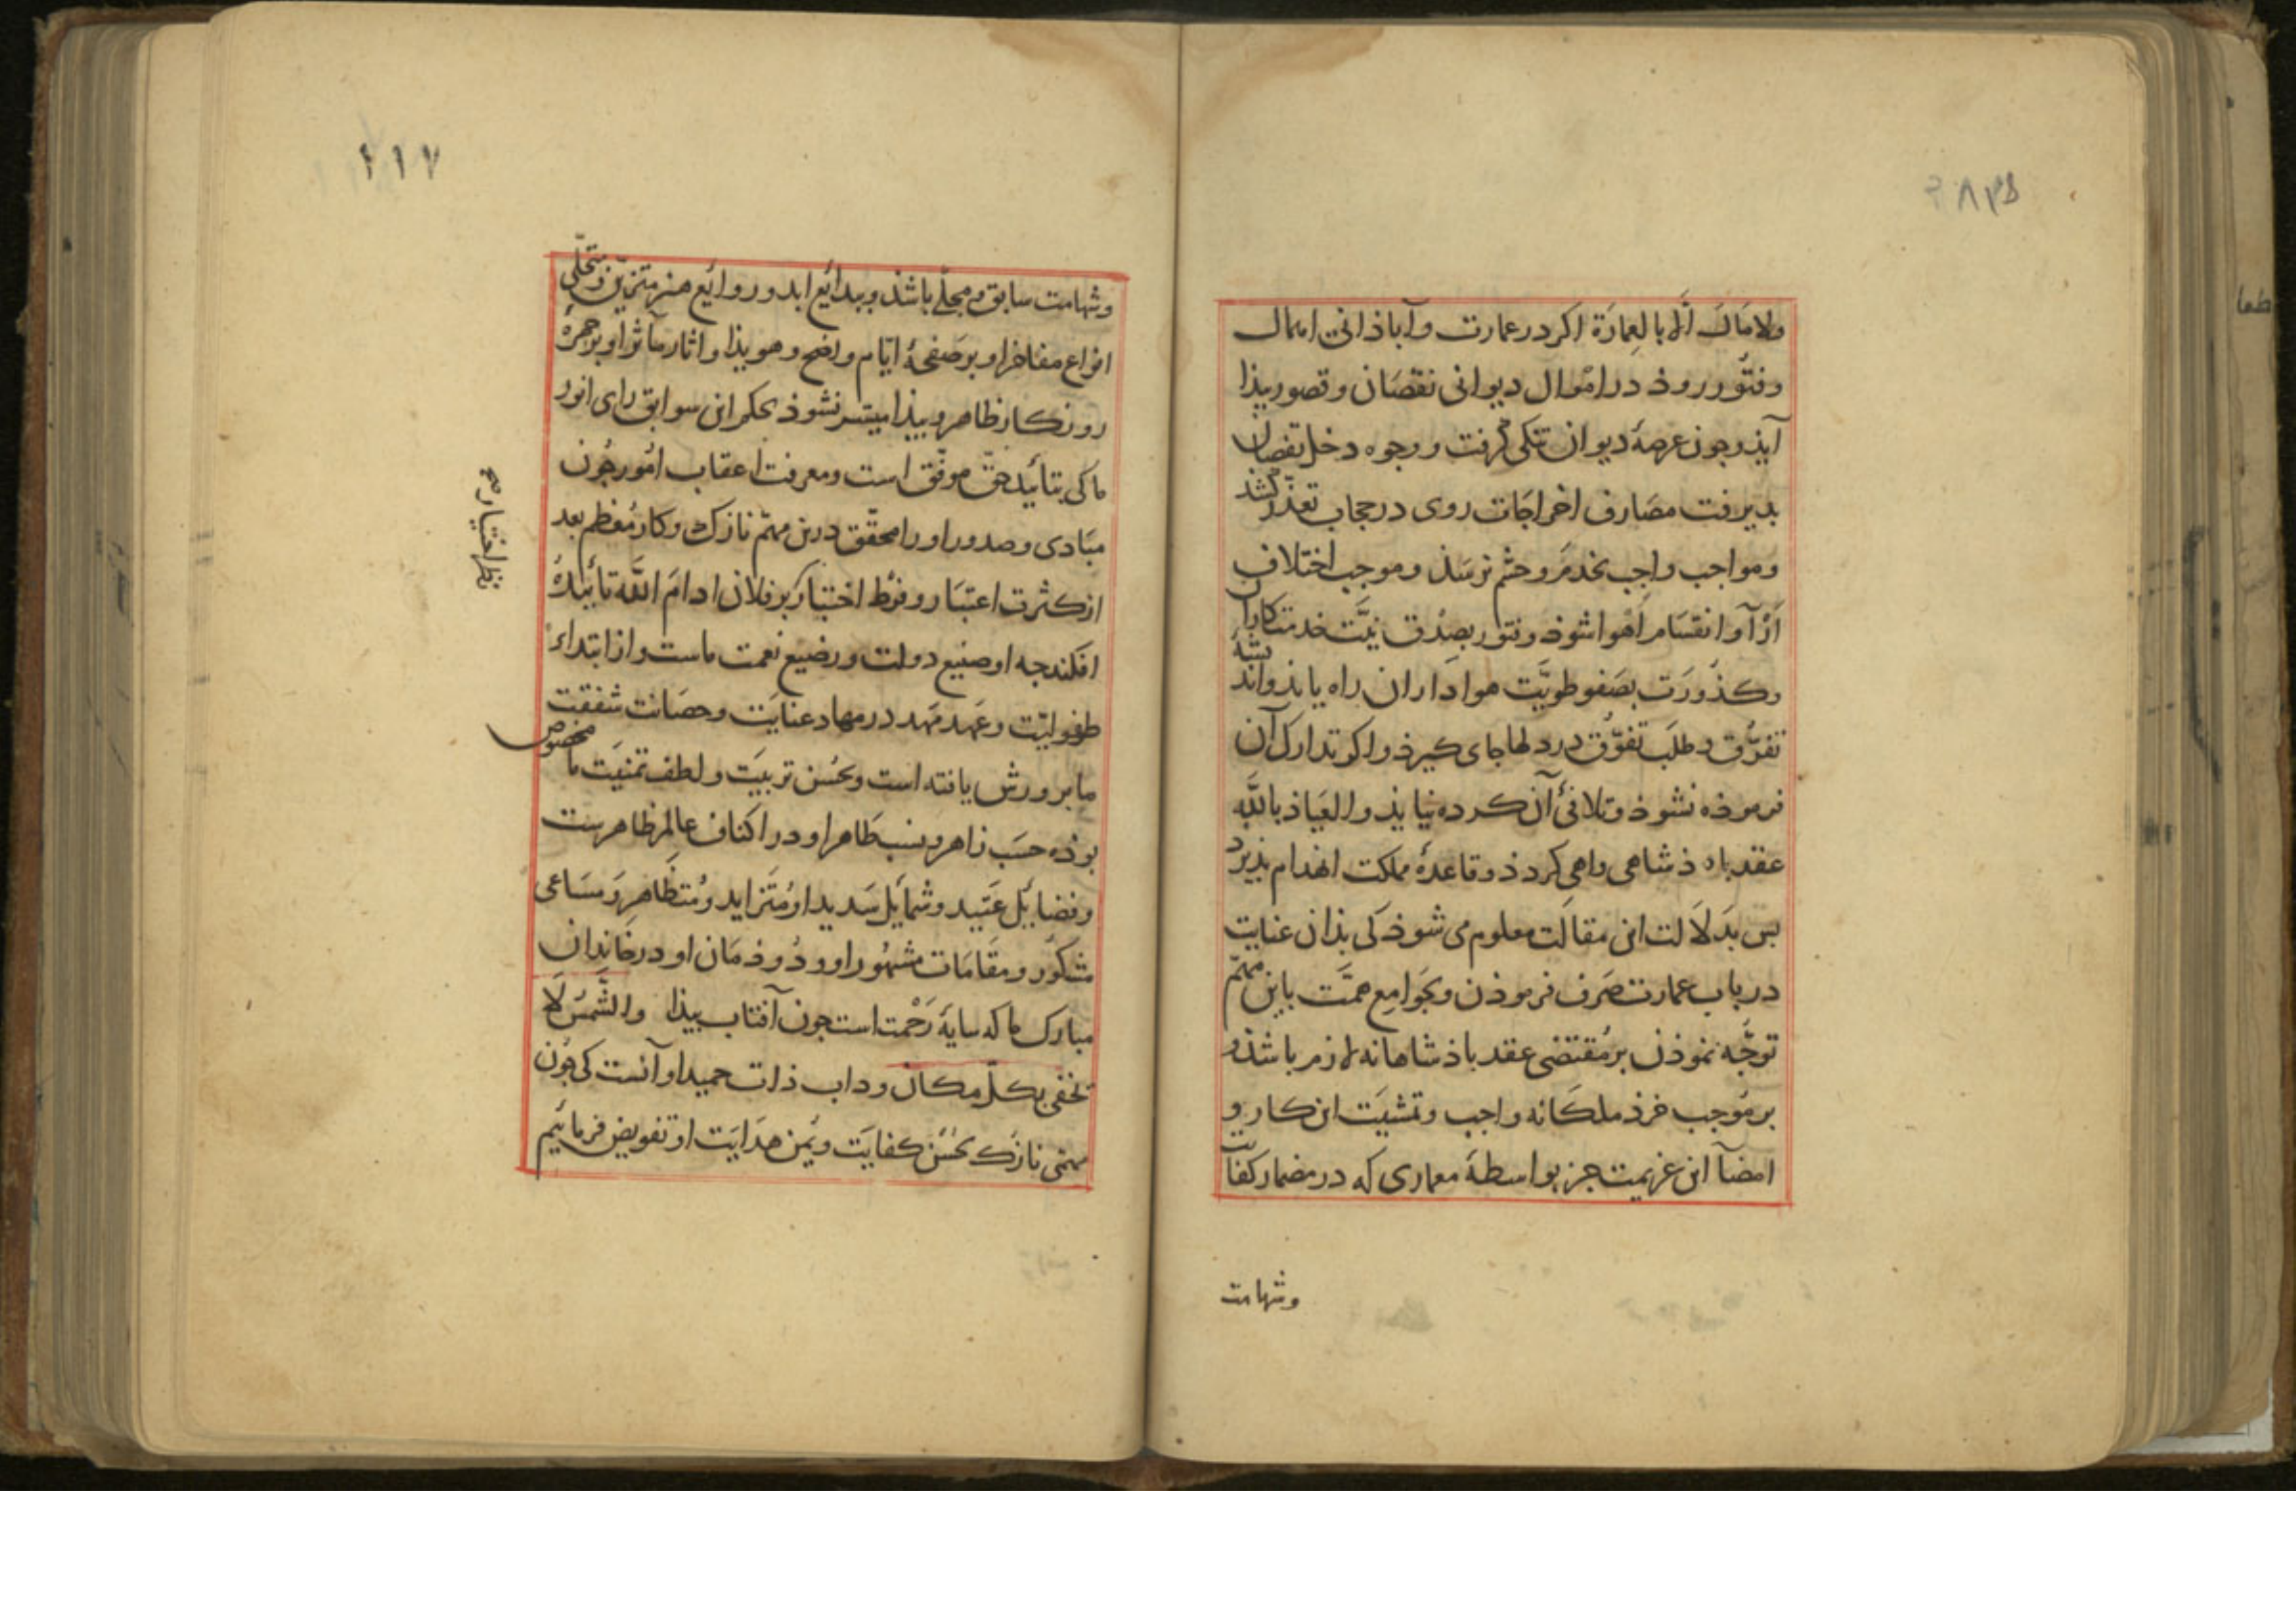 ولا مَالَ اِلّا بالعِمارَة اکر در عمارت و آباذانی اهمال
و فتُور روذ در امْوال دیوانی نقصَان و قصور بیذا
آیذ و جون عرصهٔ دیوان تنکی کرفت و وجوه دخل نقصان
بدیرفت مصَارف اخراجَات روی در حجاب تعذّر کشذ
وَ مواجب واجِب بخدمَ و حشم نرسَذ و موجب اختلاف
آرْآ و انقسَام اَهْوا شوذ و فتور بصِدْق نیَّت خدمتکاران
و کذُورَت بصَفو طویَّت هواداران راه یابذ و اندیشهٔ
تفرُّق و طلَب تفوُّق در دلها جای کیرذ و اکر تدارک آن
فرموذه نشوذ و تلافیٔ آن کرده نیایذ و العَیاذ باللّه
عقد باذشاهی واهی کردذ و قاعدهٔ مملکت انهدام بذیرد
بس بَدلَالت این مقالَت معلوم می شوذ کی بذان عنایت
در باب عمارت صَرف فرموذن و بجَوامِع همَّت باین مهمّ
توجُّه نموذن بر مُقتضی عقد باذشاهانه لازم باشذ و
بر مُوجب خرذ ملکَانه واجب و تمشیَت این کار و
امضآ این عزیمت جز بواسطهٔ معماری که در مضمار کفایت
وشهامت
۱۱۷
وشهامت سابق و مجلّی باشذ و ببدائع ابد و روائع هنر متزیّن و متحلّی
انواع مفاخر او بر صَفحهٔ ایّام واضح و هویذا و اثار مآثر او بر جهرهٔ
روزکار ظاهر و بیذا میسّر نشوذ بحکم این سوابق رای انور
ما کی بتائید حقّ موفّق است و معرفت اعقاب امُور جُون
مبَادی و صدور او را محقّق درین مهمّ نازک و کار مُعظم بعد
از کثرت اعتبَار و فرْط اختبار بر فلان ادامَ اللّه تأییدهُ
نظر اختیار
افکند جه او صنیع دولت و رضیع نعمت ماست و از ابتداء
طفولیّت و عَهد مَهد در مهاد عنایَت و حصَانت شفقت
ما برورش یافته است و بحُسن تربیَت و لطف تمنیَت ما مخصوص
بوذه حسَب زاهر و نسب طَاهر او در اکناف عالم ظاهرست
و فضایٔل عَتید و شمایٔل سَدید او مُتَزاید و مُتظَاهِر وَ مسَاعی
مشکوُر و مقَامَات مشهوُر او و دُوذمَان او در خاندان
مبارک ما که سایهٔ رَحْمت است جون آفتاب بیذا والشَّمسُ لَا
تخفی بکلّ مکان و داب ذات حمید او آنست کی جُون
مهمّی نازُک بحُسْن کفایَت و یُمن هدَایَت او تفویض فرمائیم